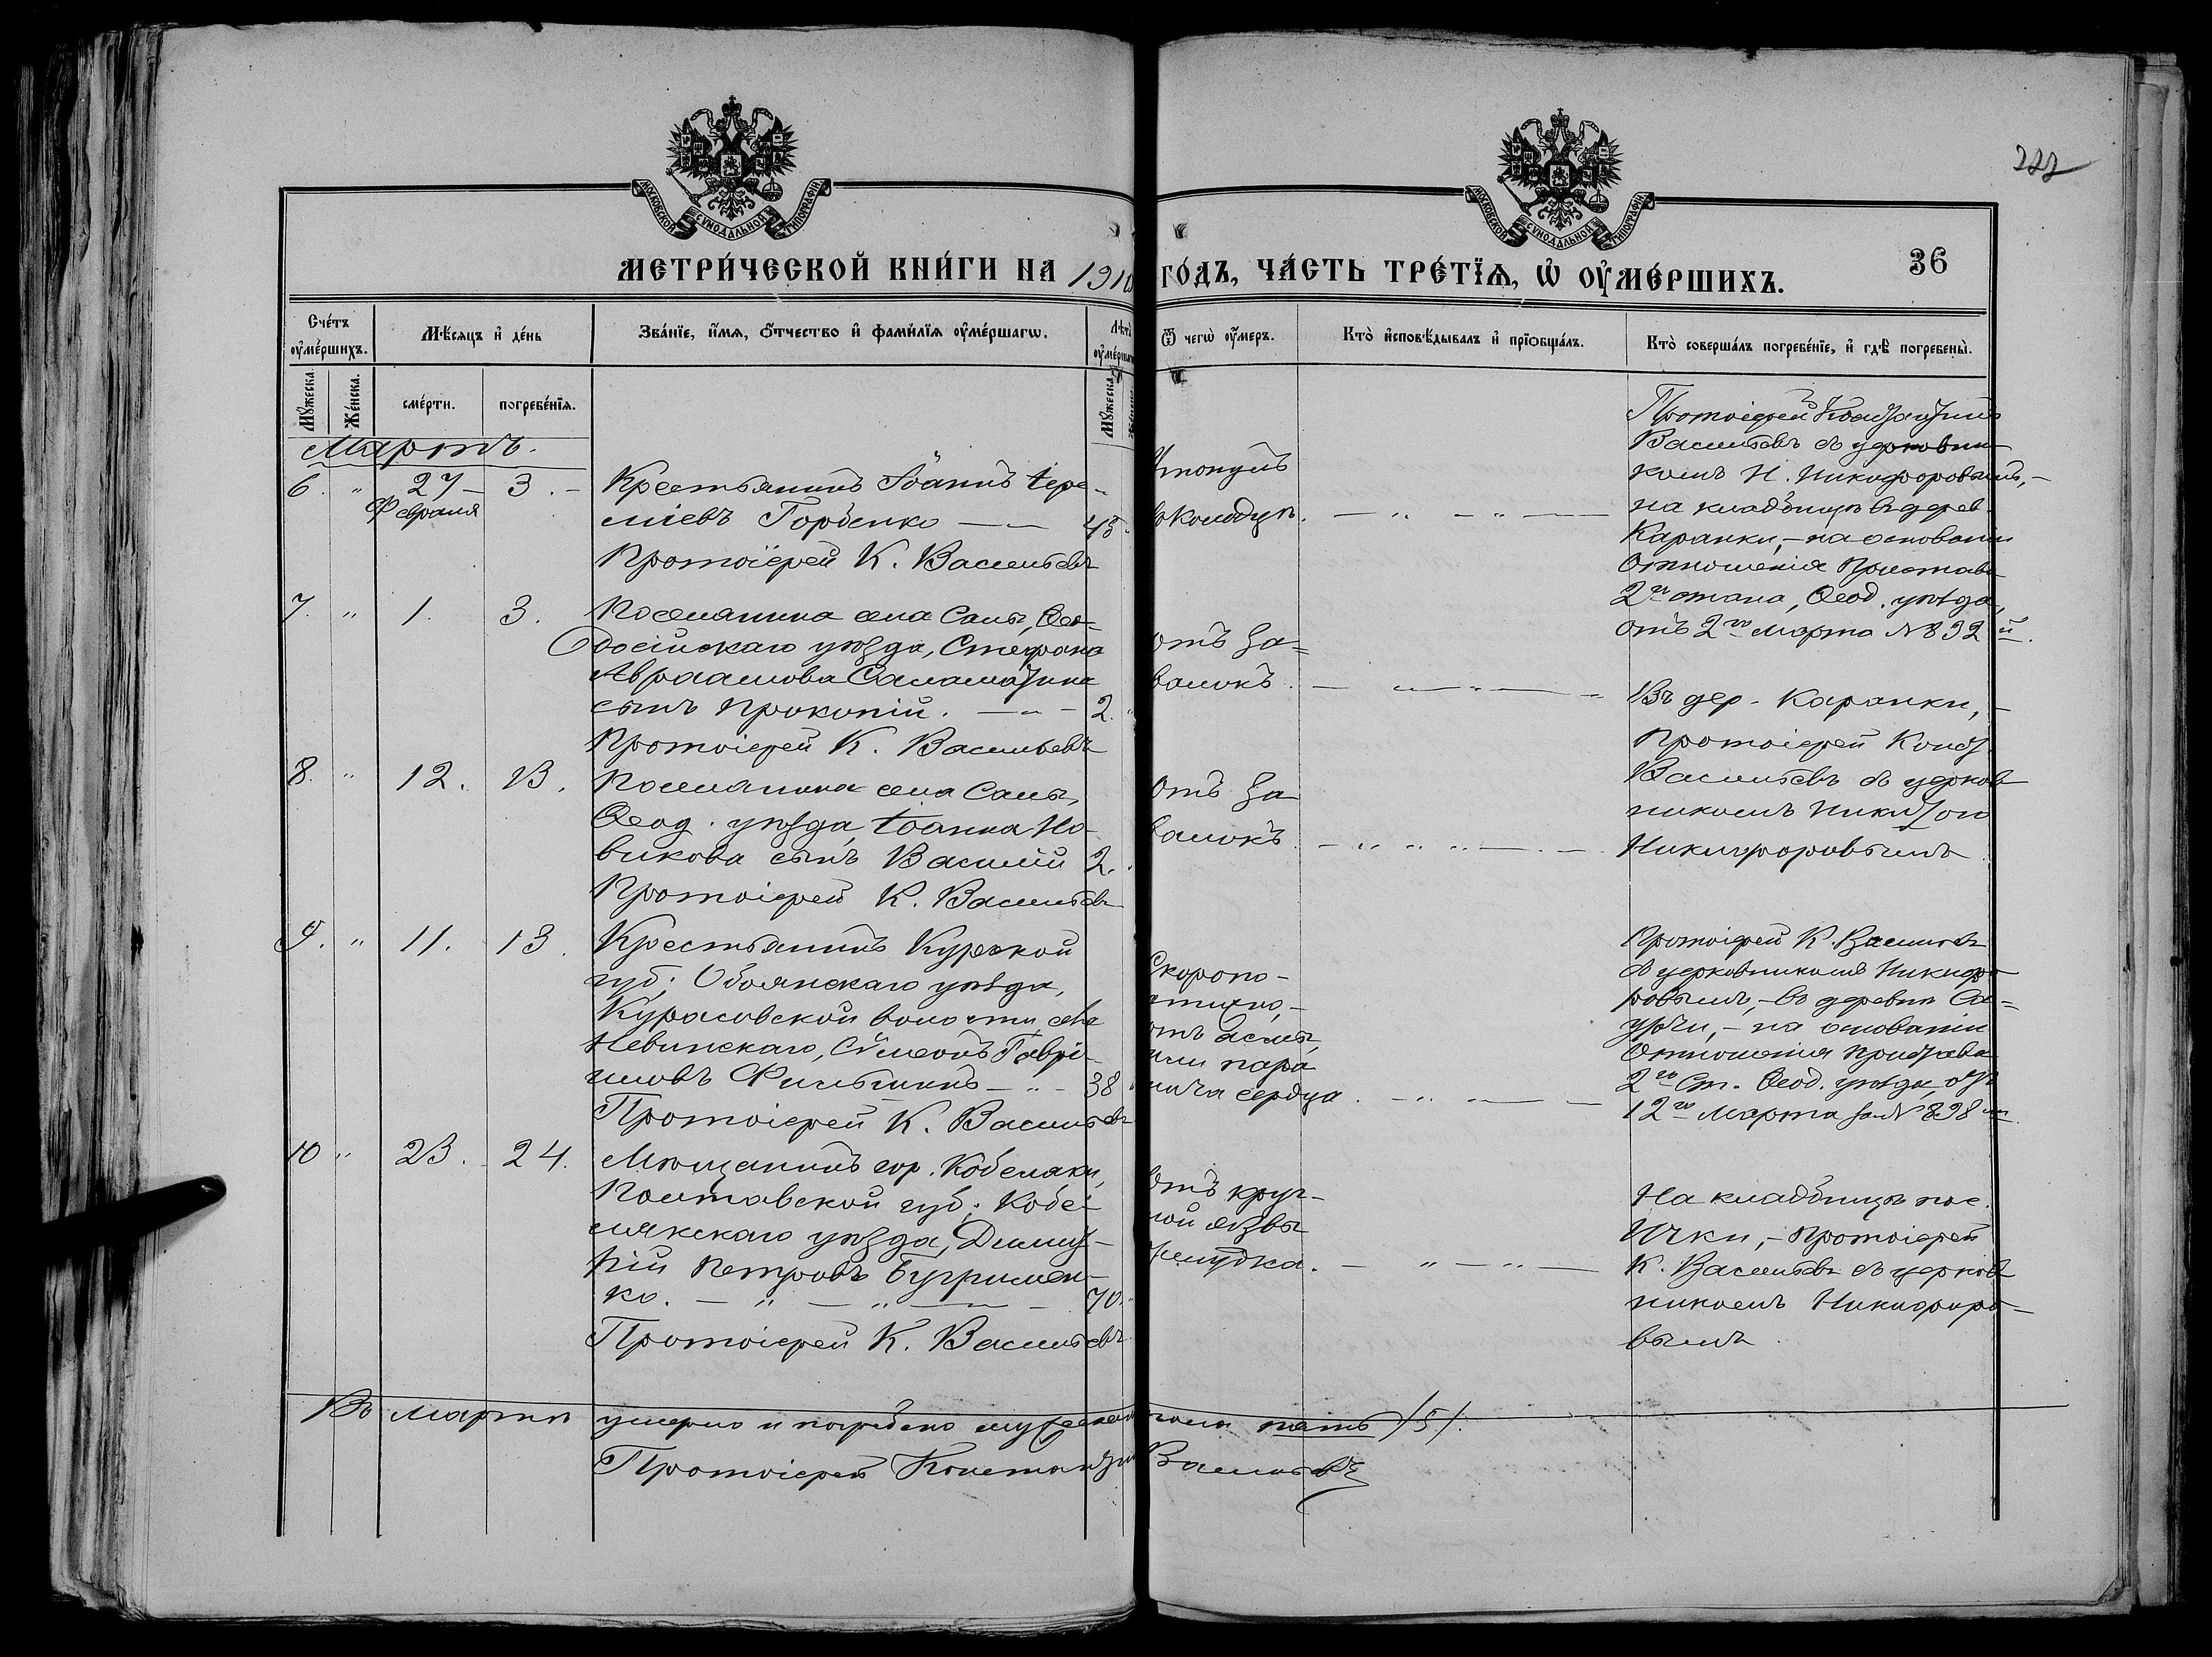 222
МОСКОВСКОЙ СУНОДАЛЬНОЙ ТИПОГРАФІИ
МОСКОВСКОЙ СУНОДАЛЬНОЙ ТИПОГРАФІИ
36
МЕТРИ́ЧЕСКОЙ КНИ́ГИ НА 1910 ГО́ДЪ, ЧА́СТЬ ТРЕ́ТІѦ, Ѡ҆ ОУ҆МЕ́РШИХЪ.
Сче́тъ оу҆ме́ршихъ.
Мѣ́сяцъ и҆ де́нь
Зва́нїе, и҆́мя, ѻ҆́тчество и҆ фами́лїя оу҆ме́ршагѡ.
Лѣта оу҆ме́ршагѡ
Ѿ чегѡ̀ оу҆́меръ.
Кто̀ и҆сповѣ́дывалъ и҆ прїѡбща́лъ.
Кто̀ соверша́лъ погребе́нїе, и҆ гдѣ̀ погребены̀.
Мꙋ́жеска.
Же́нска.
сме́рти.
погребе́нїя.
Мꙋ́жеска.
Мартъ.
6. " 27 Февраля 3.
Крестьянинъ Іоаннъ Іере-
міевъ Горбенко
Протоіерей К. Васильевъ
45.
Утонулъ
въ колодцѣ.
Протоіерей Константинъ
Васильевъ съ церковни
комъ Н. Никифоровымъ,
на кладбищѣ въ дерев.
Каранки, - на основаніи
Отношенія Пристава
2го стана, Ѳеод. уѣзда,
отъ 2го Марта № 832й.
7. " 1. 3.
Поселянина села Салы, Ѳео-
досійскаго уѣзда, Стефана
Авраамова Саламатина
сынъ Прокопій.
Протоіерей К. Васильевъ
2.
отъ За=
валокъ.
Въ дер. Каранки,
Протоіерей Конст.
Васильевъ съ церков
никомъ Никитою
Никифоровымъ
8. " 12. 13.
Поселянина села Салы,
Ѳеод. уѣзда, Іоанна Но-
викова сынъ Василій
Протоіерей К. Васильевъ
2.
Отъ За
валокъ.
9. " 11. 13.
Крестьянинъ Курской
губ., Обоянскаго уѣзда,
Курасовской волости, села
Невинскаго, Сѷмеонъ Гаврі-
иловъ Филькинъ
Протоіерей К. Васильевъ
38
Скоропо-
стижно, -
отъ асмы,
или пара
лича сердца.
Протоіерей К. Васильевъ
съ церковникомъ Никифо-
ровымъ, - въ деревни
на основаніи
Отношенія Пристава
2го Ст. Ѳеод. уѣзда, отъ
12го Марта за № 898
10 " 23. 24.
Мѣщанинъ гор. Кобеляки,
Полтавской губ., Кобе-
лякскаго уѣзда, Димит-
рій Петровъ Бугримен-
ко.
Протоіерей К. Васильевъ
70.
Отъ круг-
лой язвы
желудка.
На кладбищѣ пос.
Ички, - Протоіерей
К. Васильевъ съ церков
никомъ Никифоро-
вымъ
Въ мартѣ умерло и погребено мужеска пола пять /5/.
Протоіерей Константинъ Васильевъ